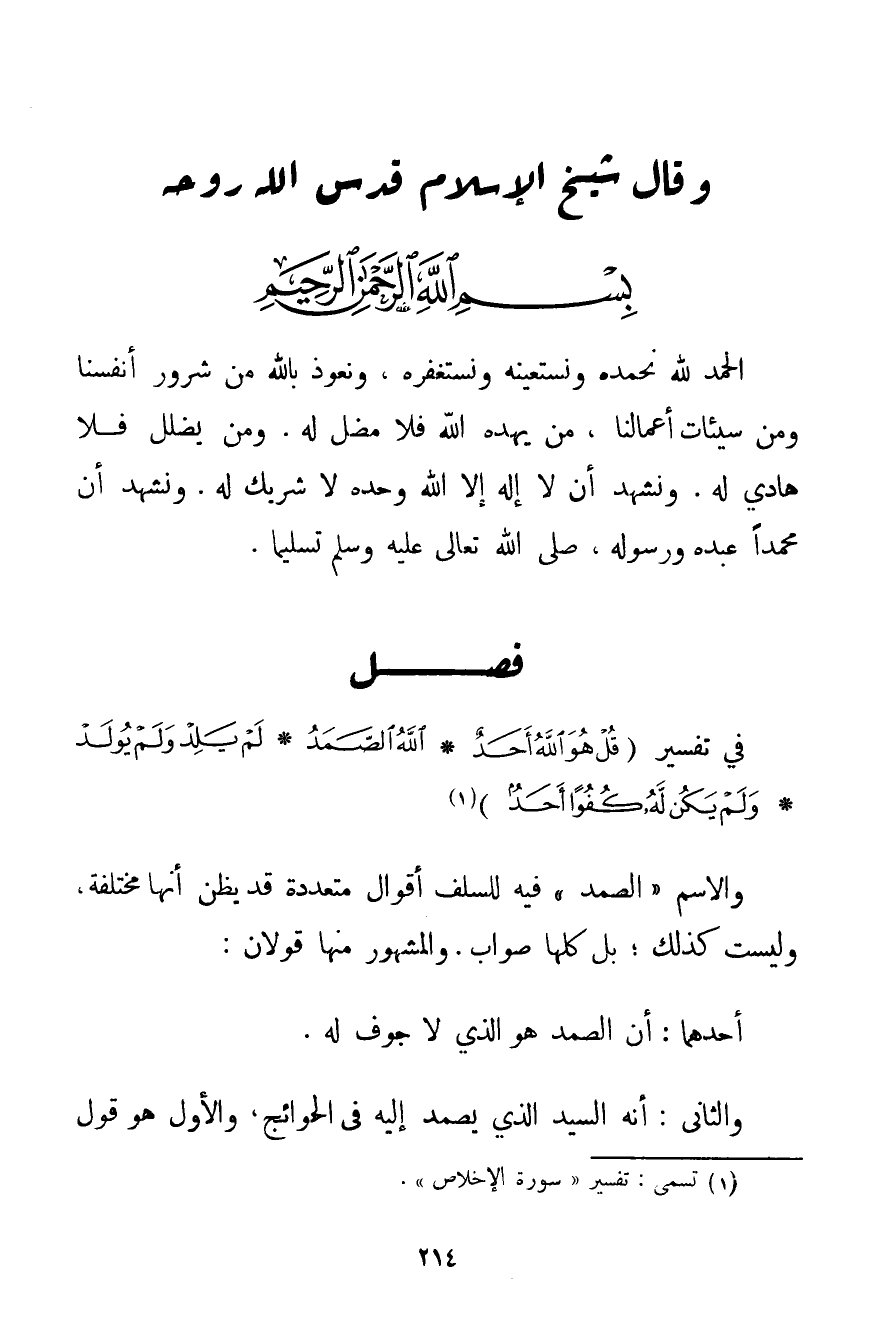 وقال شيخ الإسلام قدس الله روحه
بِسْمِ ٱللَّهِ ٱلرَّحْمَٰنِ ٱلرَّحِيمِ
الحمد لله نحمده ونستعينه ونستغفره ، ونعوذ بالله من شرور أنفسنا
ومن سيئات أعمالنا ، من يهده الله فلا مضل له . ومن يضلل فلا
هادي له . ونشهد أن لا إله إلا الله وحده لا شريك له . ونشهد أن
محمداً عبده ورسوله ، صلى الله تعالى عليه وسلم تسليما .
فصل
في تفسير ( قُلْ هُوَ ٱللَّهُ أَحَدٌ * ٱللَّهُ ٱلصَّمَدُ * لَمْ يَلِدْ وَلَمْ يُولَدْ
* وَلَمْ يَكُن لَّهُۥ كُفُوًا أَحَدٌۢ )(١)
والاسم « الصمد » فيه للسلف أقوال متعددة قد يظن أنها مختلفة ،
وليست كذلك ؛ بل كلها صواب . والمشهور منها قولان :
أحدهما : أن الصمد هو الذي لا جوف له .
والثانى : أنه السيد الذي يصمد إليه فى الحوائج ، والأول هو قول
(١) تسمى : تفسير « سورة الإخلاص » .
٢١٤